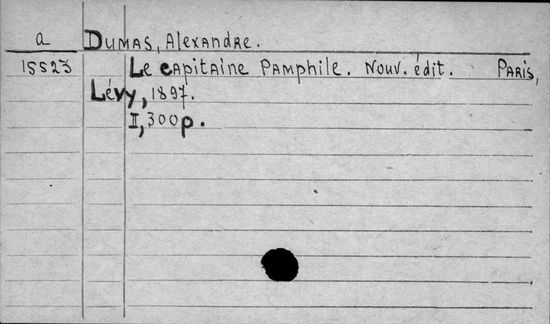 a DUMAS, Alexandre.
15523 Le capitaine Pamphile. Nouv. édit. Paris,
Lévy, 1897.
II, 300 p.